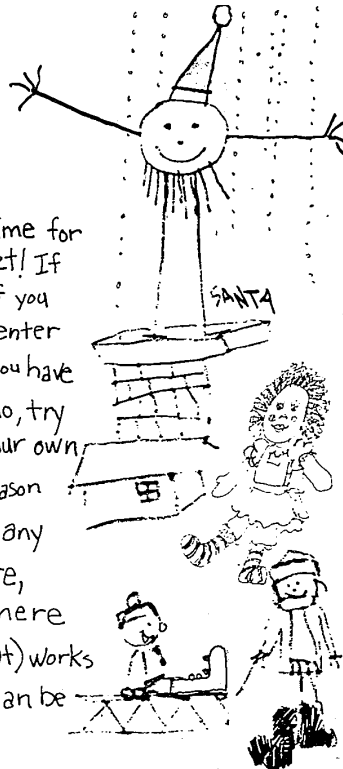 me for
et! If
f you
SANTA
enter
ou have
o, try
ur own
ason
any
re,
here
t) works
an be